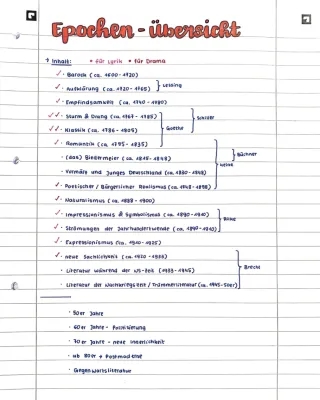 Epochen-übersicht
→ Inhalt: • für Lyrik • für Drama
✓ • Barock (ca. 1600-1720)
✓ • Aufklärung (ca. 1720-1785) Lessing
• Empfindsamkeit (ca. 1740-1780)
✓✓ • Sturm & Drang (ca. 1767-1785) Schiller
✓✓ • Klassik (ca. 1786-1805) Goethe
✓ • Romantik (ca. 1795-1835)
• (das) Biedermeier (ca. 1815-1848) Büchner
• Vormärz und Junges Deutschland (ca. 1830-1848) Heine
✓ • Poetischer / Bürgerlicher Realismus (ca. 1848-1890)
✓ • Naturalismus (ca. 1880-1900)
✓ • Impressionismus & Symbolismus (ca. 1890-1910) Rilke
✓ • Strömungen der Jahrhundertwende (ca. 1890-1910)
✓ • Expressionismus (ca. 1910-1925)
✓ • neue Sachlichkeit (ca. 1920-1933)
• Literatur während der NS-Zeit (1933-1945) Brecht
• Literatur der Nachkriegszeit / Trümmerliteratur (ca. 1945-50er)
• 50er Jahre
• 60er Jahre - Politisierung
• 70er Jahre - neue Innerlichkeit
• ab 80er + Postmoderne
• Gegenwartsliteratur